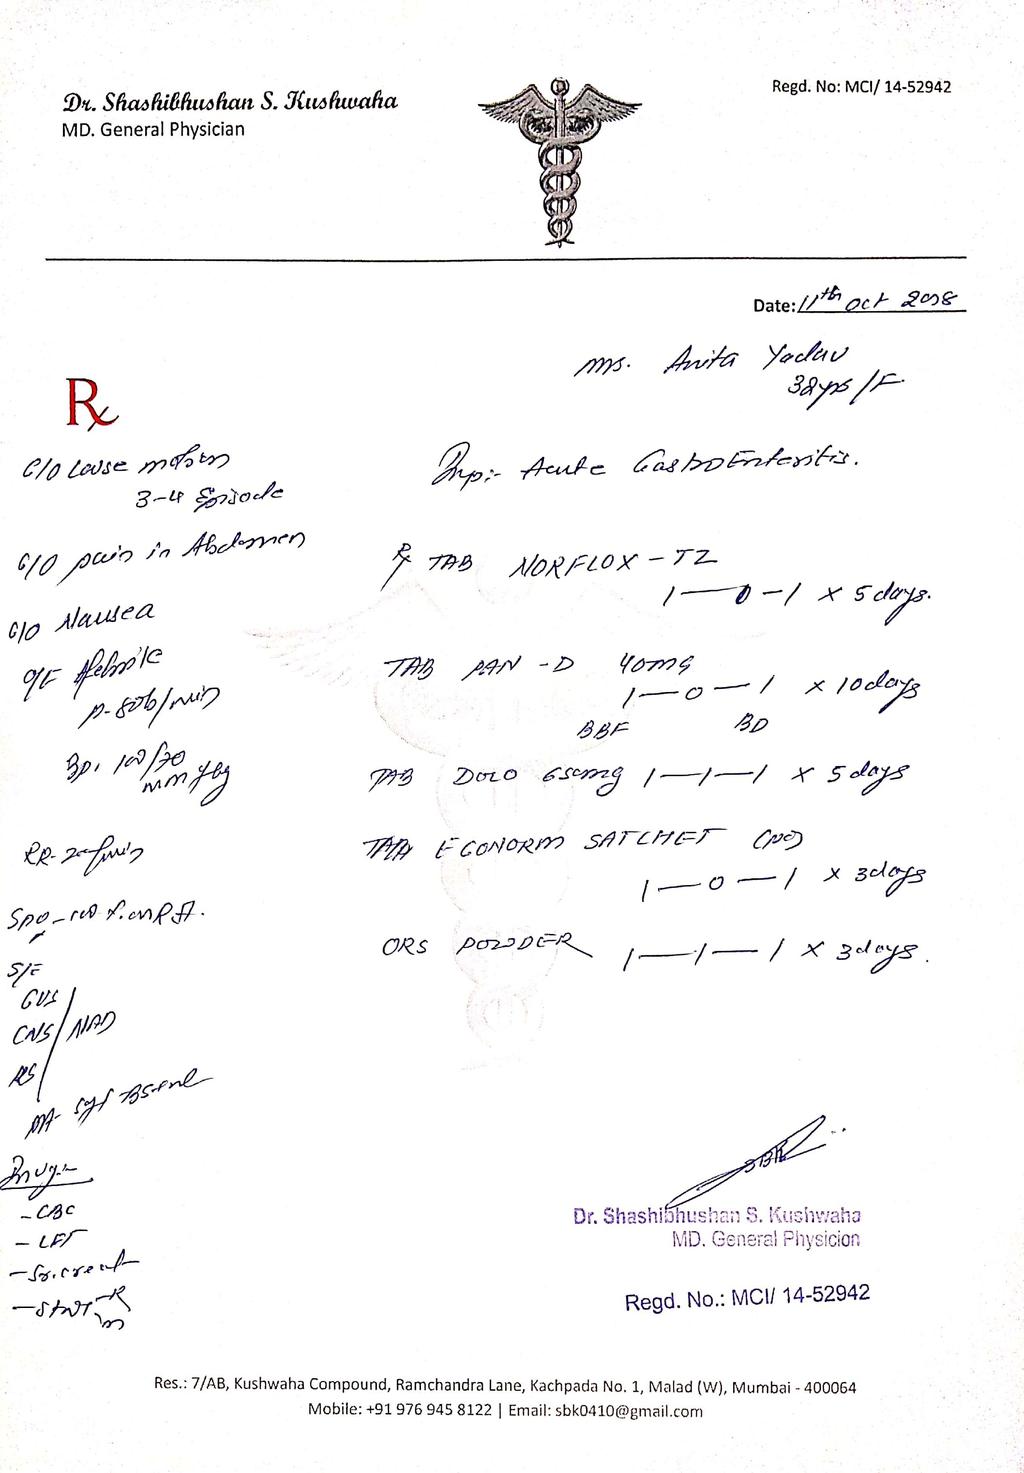 Dr. Shashibhushan S. Kushwaha
MD. General Physician
Regd. No: MCI/ 14-52942
Date: 11th Oct 2018
Ms. Anita Yadav
32yrs/F
Rx
C/O Loose motion
3-4 Episode
C/O pain in Abdomen
C/O Nausea
O/E Afebrile
P- 80b/min
BP. 100/70
mm Hg
RR- 20/min
SPO2 - 100 % on RA.
S/E
CVS
CNS / NAD
RS
PA- Soft
Invg:-
- CBC
- LFT
- Sr. creat
- Stool R
m
Imp:- Acute GastroEnteritis.
Rx TAB NORFLOX - TZ
1 — 0 - 1 x 5 days.
TAB PAN - D 40mg
1 — 0 — 1 x 10 days
BBF BD
TAB DOLO 650mg 1 — 1 — 1 x 5 days
ECONORM SATCHET
1 — 0 — 1 x 3 days
ORS POWDER 1 — 1 — 1 x 3 days.
SBK
Dr. Shashibhushan S. Kushwaha
MD. General Physicion
Regd. No.: MCI/ 14-52942
Res.: 7/AB, Kushwaha Compound, Ramchandra Lane, Kachpada No. 1, Malad (W), Mumbai - 400064
Mobile: +91 976 945 8122 | Email: sbk0410@gmail.com